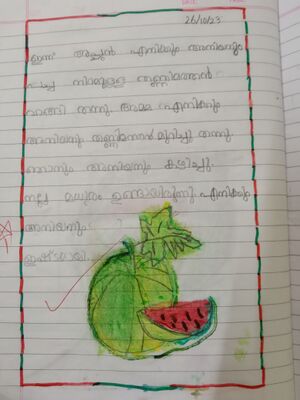 26/10/23
ഇന്ന് അച്ഛൻ എനിക്കും അനിയനും
പച്ച നിറമുള്ള തണ്ണിമത്തൻ
വാങ്ങി തന്നു. അമ്മ എനിക്കും
അനിയനും തണ്ണിമത്തൻ മുറിച്ചു തന്നു
ഞാനും അനിയനും കഴിച്ചു.
നല്ല മധുരം ഉണ്ടായിരുന്നു. എനിക്കും
അനിയനും
ഇഷ്ടമായി.